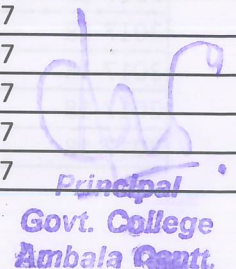 7
7
7
7
7
Principal
Govt. College
Ambala Cantt.